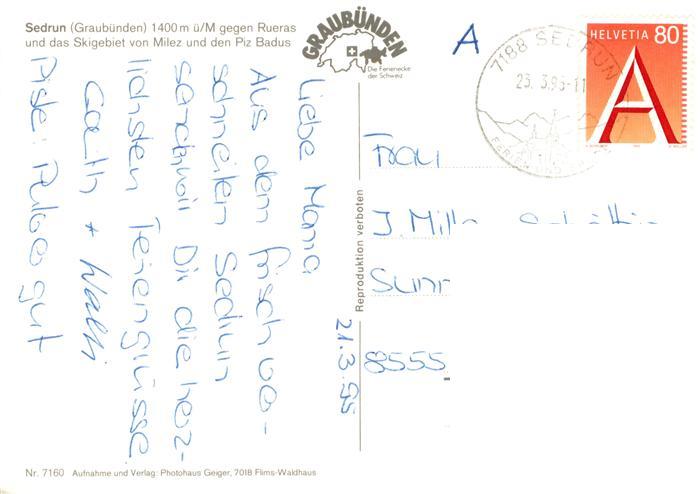 Sedrun (Graubünden) 1400 m ü/M gegen Rueras
und das Skigebiet von Milez und den Piz Badus
GRAUBÜNDEN
Die Ferienecke
der Schweiz
A
7188 SEDRUN
23.3.95-11
HELVETIA 80
A
Liebe Mama
Aus dem frisch ve-
schneiten Sedrun
senden wir Dir die herz-
lichsten Feriengrüsse.
+ Walti
gut
21.3.95
Reproduktion verboten
Frau
J.
8555
Nr. 7160 Aufnahme und Verlag: Photohaus Geiger, 7018 Flims-Waldhaus